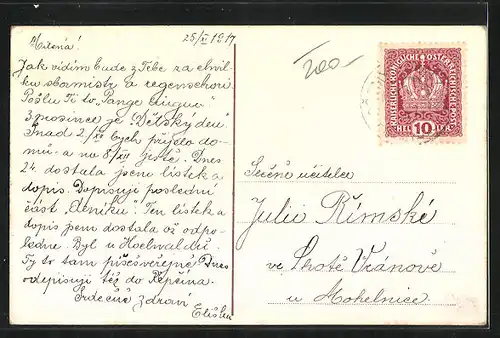 25/XI 1917
Milená!
Jak vidím bude z Tebe za chvil-
ku sbormistr a regenschori
Pošlu Ti to "Pange lingua"
3 prosince je "Dětský den"
Snad 2./XII bych přijela do-
mů - a na 8/XII ještě. Dnes
24. dostala jsem lístek a
dopis. Dopisuji poslední
část "deníku". Ten lístek a
dopis jsem dostala až odpo-
ledne. Byl u
Ty to tam Dnes
odepisuji též do Řepčína.
Srdečně zdraví
Eliška
200
KAISERLICHE KÖNIGLICHE ÖSTERREICHISCHE POST
HELLER 10 HELLER
Slečně učitelce
Julii Římské
ve Lhotě Vránově
u Mohelnice.